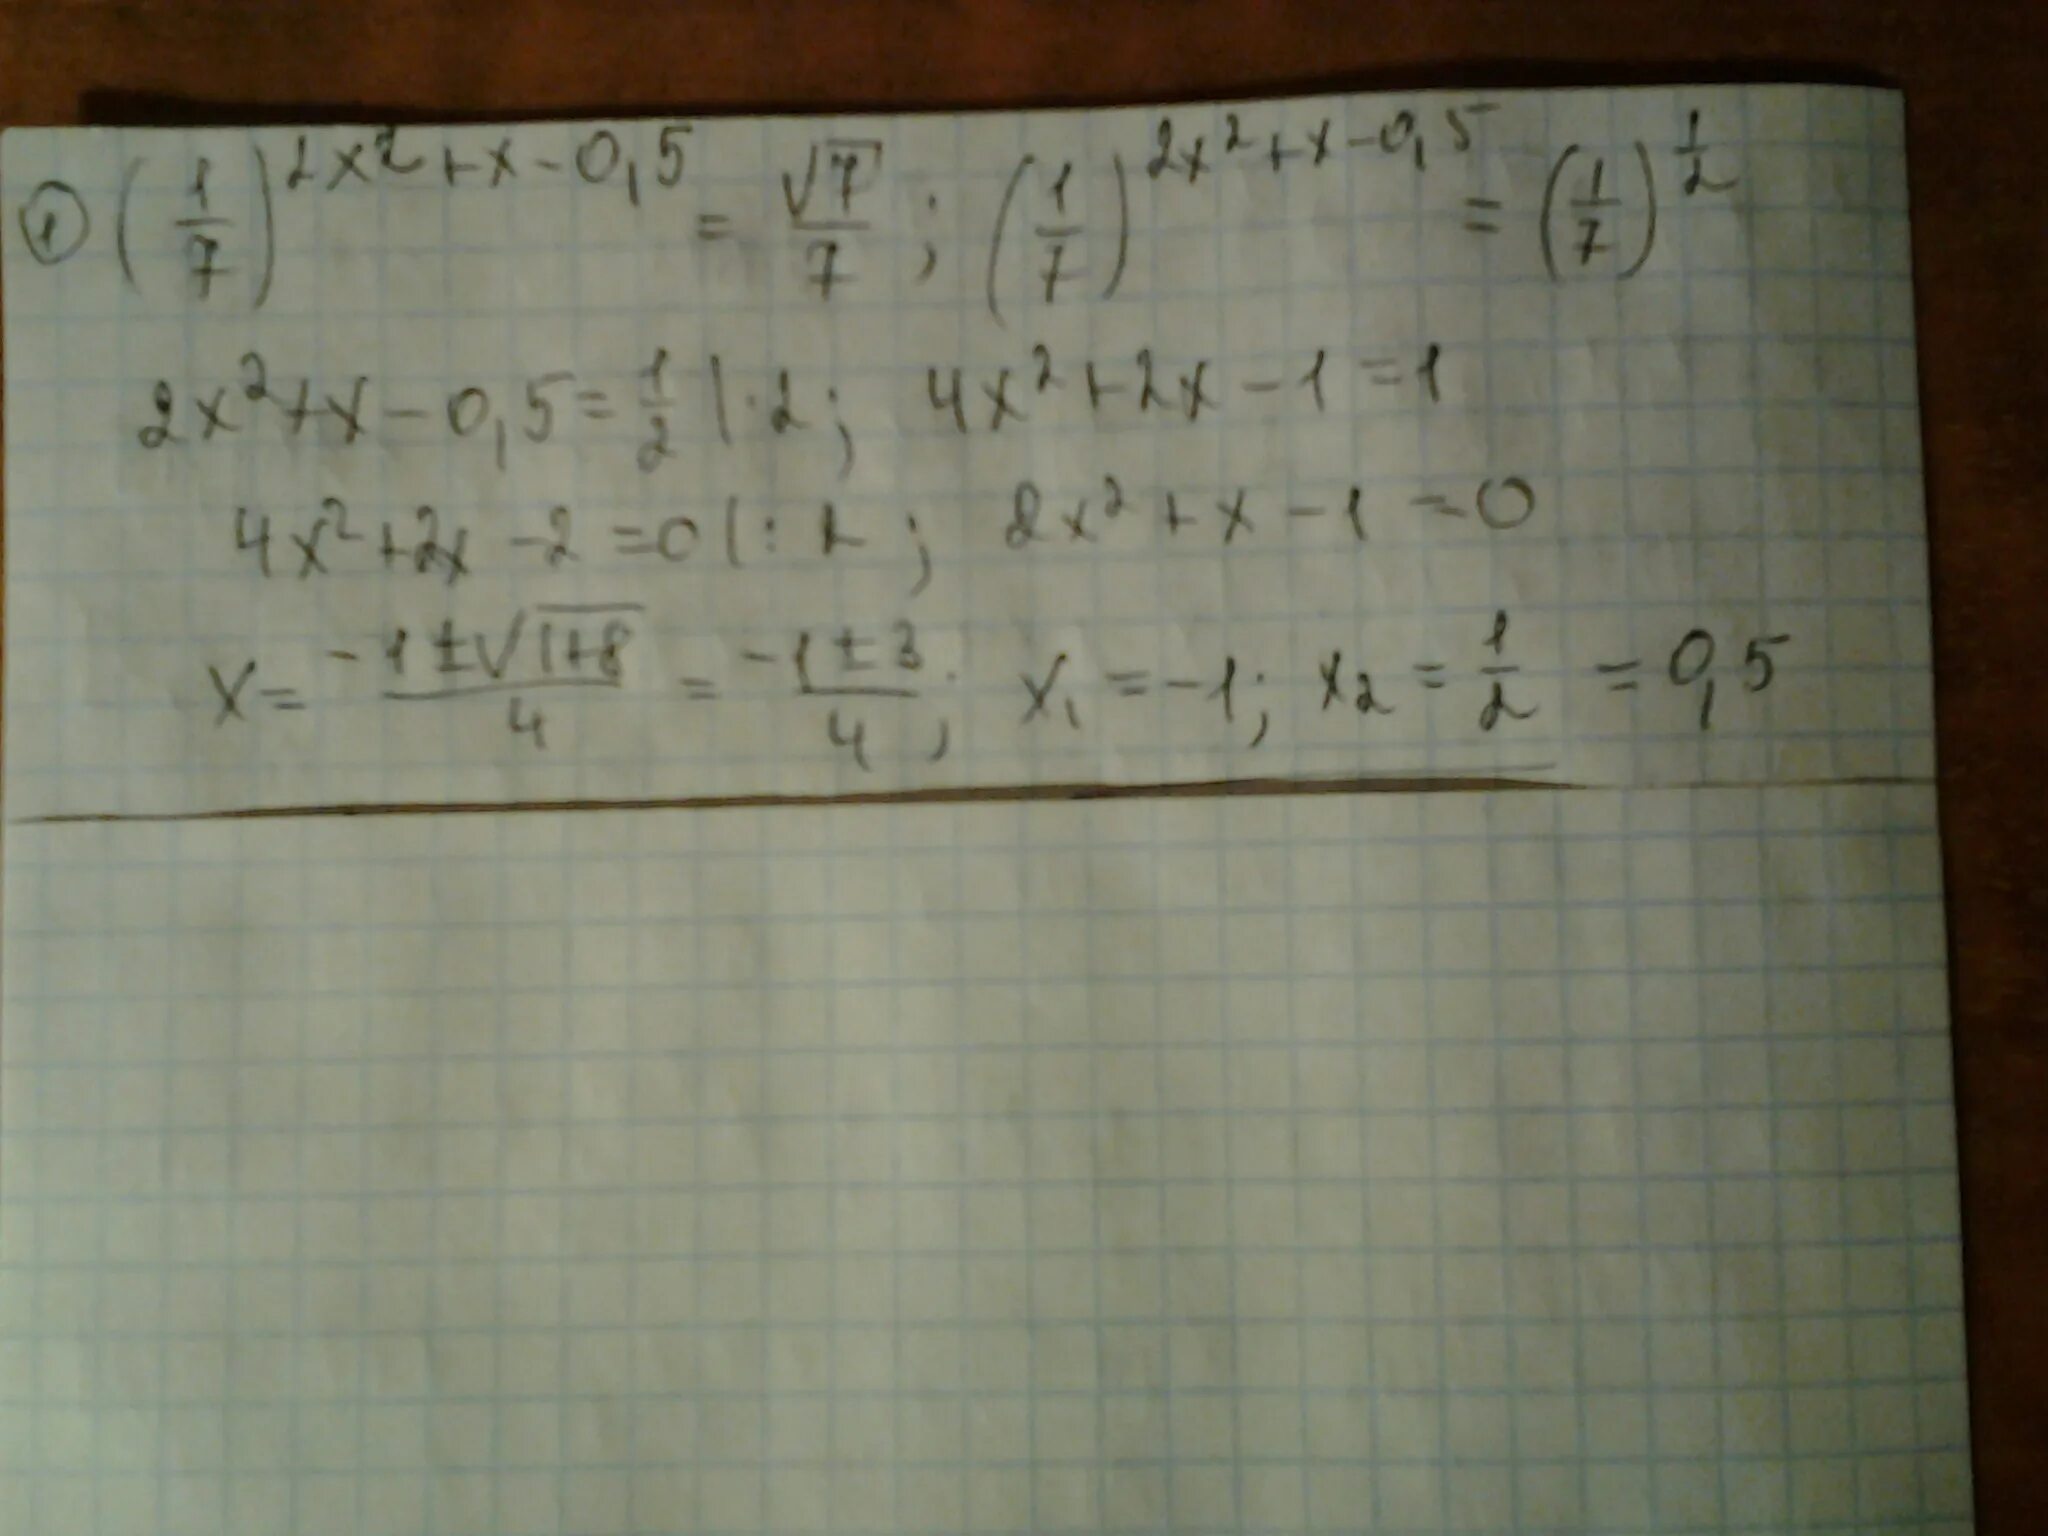 ① (1/7)^(2x²+x-0,5) = √7/7 ; (1/7)^(2x²+x-0,5) = (1/7)^(1/2)
2x²+x-0,5=1/2 |·2; 4x²+2x-1=1
4x²+2x-2=0 |:2; 2x²+x-1=0
x= (-1±√(1+8))/4 = (-1±3)/4; x₁=-1; x₂=1/2=0,5